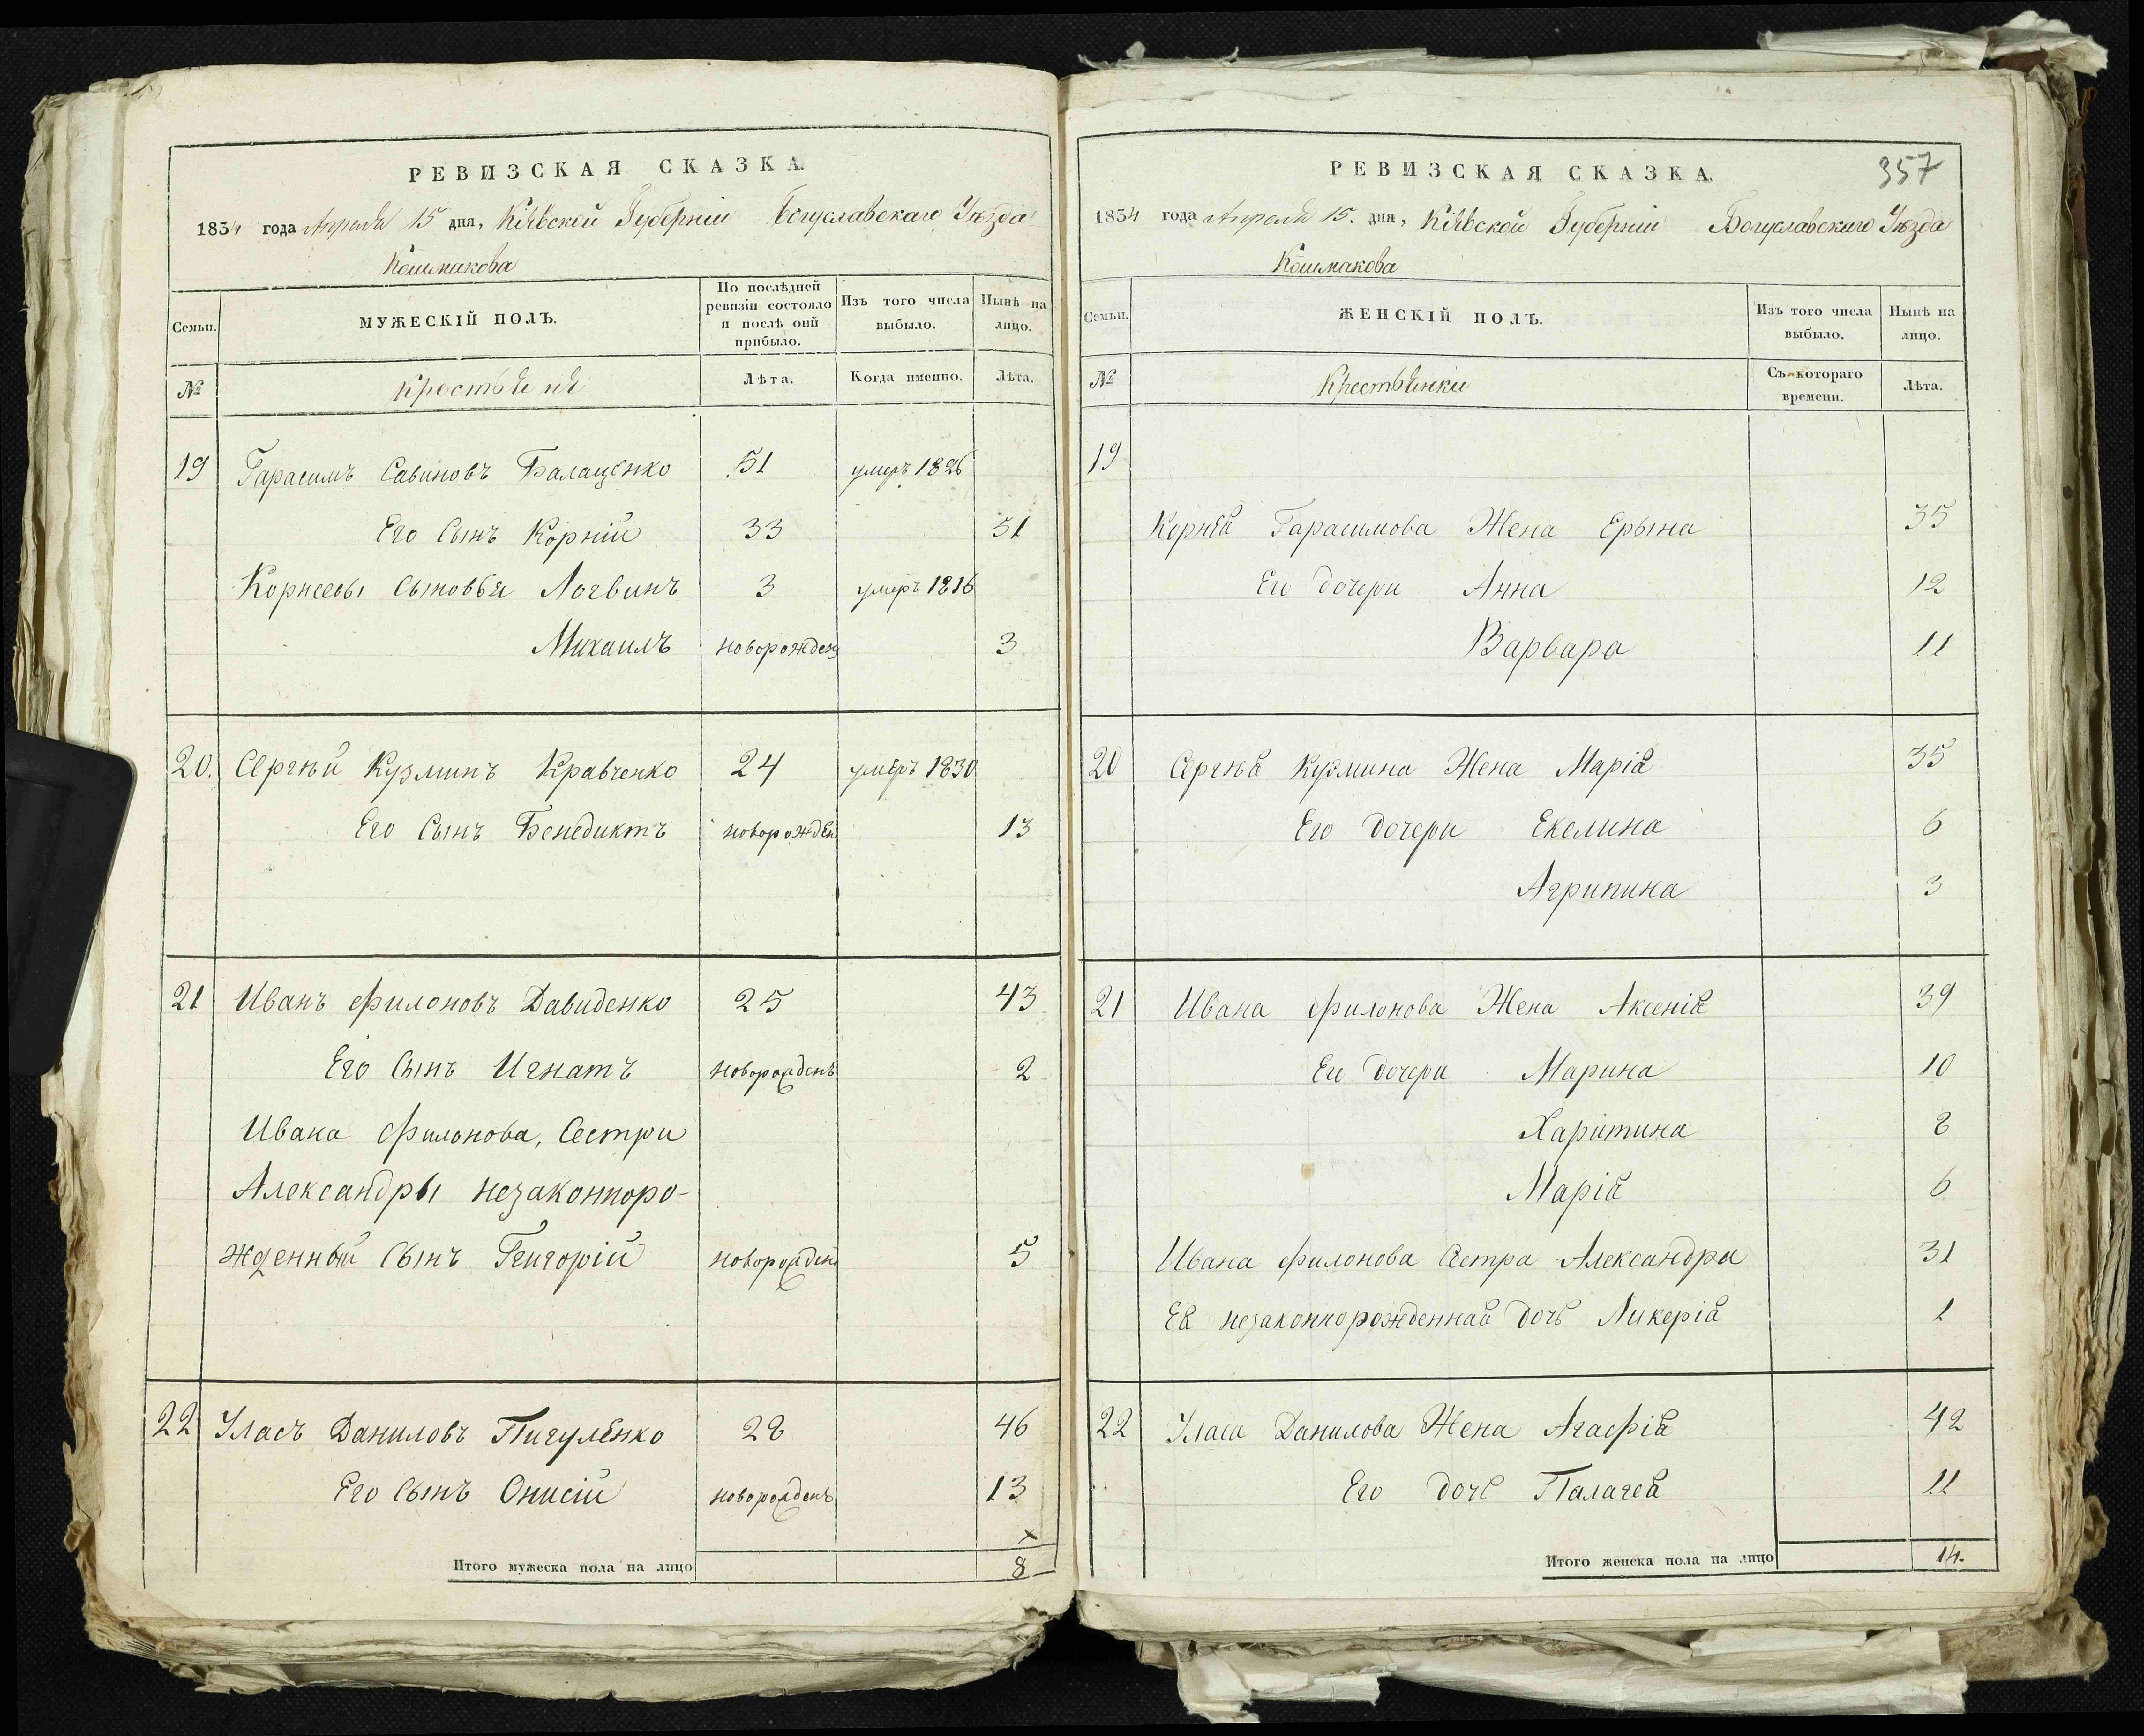 РЕВИЗСКАЯ СКАЗКА.
1834 года Апреля 15 дня, Кіявской Губерніи Богуславскаго Уѣзда
Кошмакова
Семьи.
МУЖЕСКІЙ ПОЛЪ.
По послѣдней ревизіи состояло и послѣ оной прибыло.
Изъ того числа выбыло.
Нынѣ на лицо.
№
Крестьяне
Лѣта.
Когда именно.
Лѣта.
19 Гарасимъ Савиновъ Балаценко 51 умеръ 1826
Его Сынъ Корній 33 51
Корнеевы Сыновья Логвинъ 3 умеръ 1816
Михаилъ новорожден 3
20. Сергѣй Кузминъ Кравченко 24 умеръ 1830
Его Сынъ Бенедиктъ новорожден 13
21 Иванъ Филоновъ Давиденко 25 43
Его Сынъ Игнатъ новорожденъ 2
Ивана Филонова, Сестри
Александры незаконноро-
жденный Сынъ Григорій новорожден 5
22 Уласъ Даниловъ Пигуленко 28 46
Его Сынъ Онисій новорожденъ 13
Итого мужеска пола на лицо 8
РЕВИЗСКАЯ СКАЗКА.
357
1834 года Апреля 15. дня, Кіявской Губерніи Богуславскаго Уѣзда
Кошмакова
Семьи.
ЖЕНСКІЙ ПОЛЪ.
Изъ того числа выбыло.
Нынѣ на лицо.
№
Крестьянки
Съ котораго времени.
Лѣта.
19
Корнѣя Гарасимова Жена Ерына 35
Его дочери Анна 12
Варвара 11
20 Сергѣя Кузмина Жена Марія 35
Его дочери Екелина 6
Агрипина 3
21 Ивана Филонова Жена Аксенія 39
Его дочери Марина 10
Харитина 8
Марія 6
Ивана Филонова Сестра Александра 31
Ея незаконнорожденная дочь Ликерія 1
22 Уласа Данилова Жена Агафія 42
Его дочь Палагея 11
Итого женска пола на лицо 14.